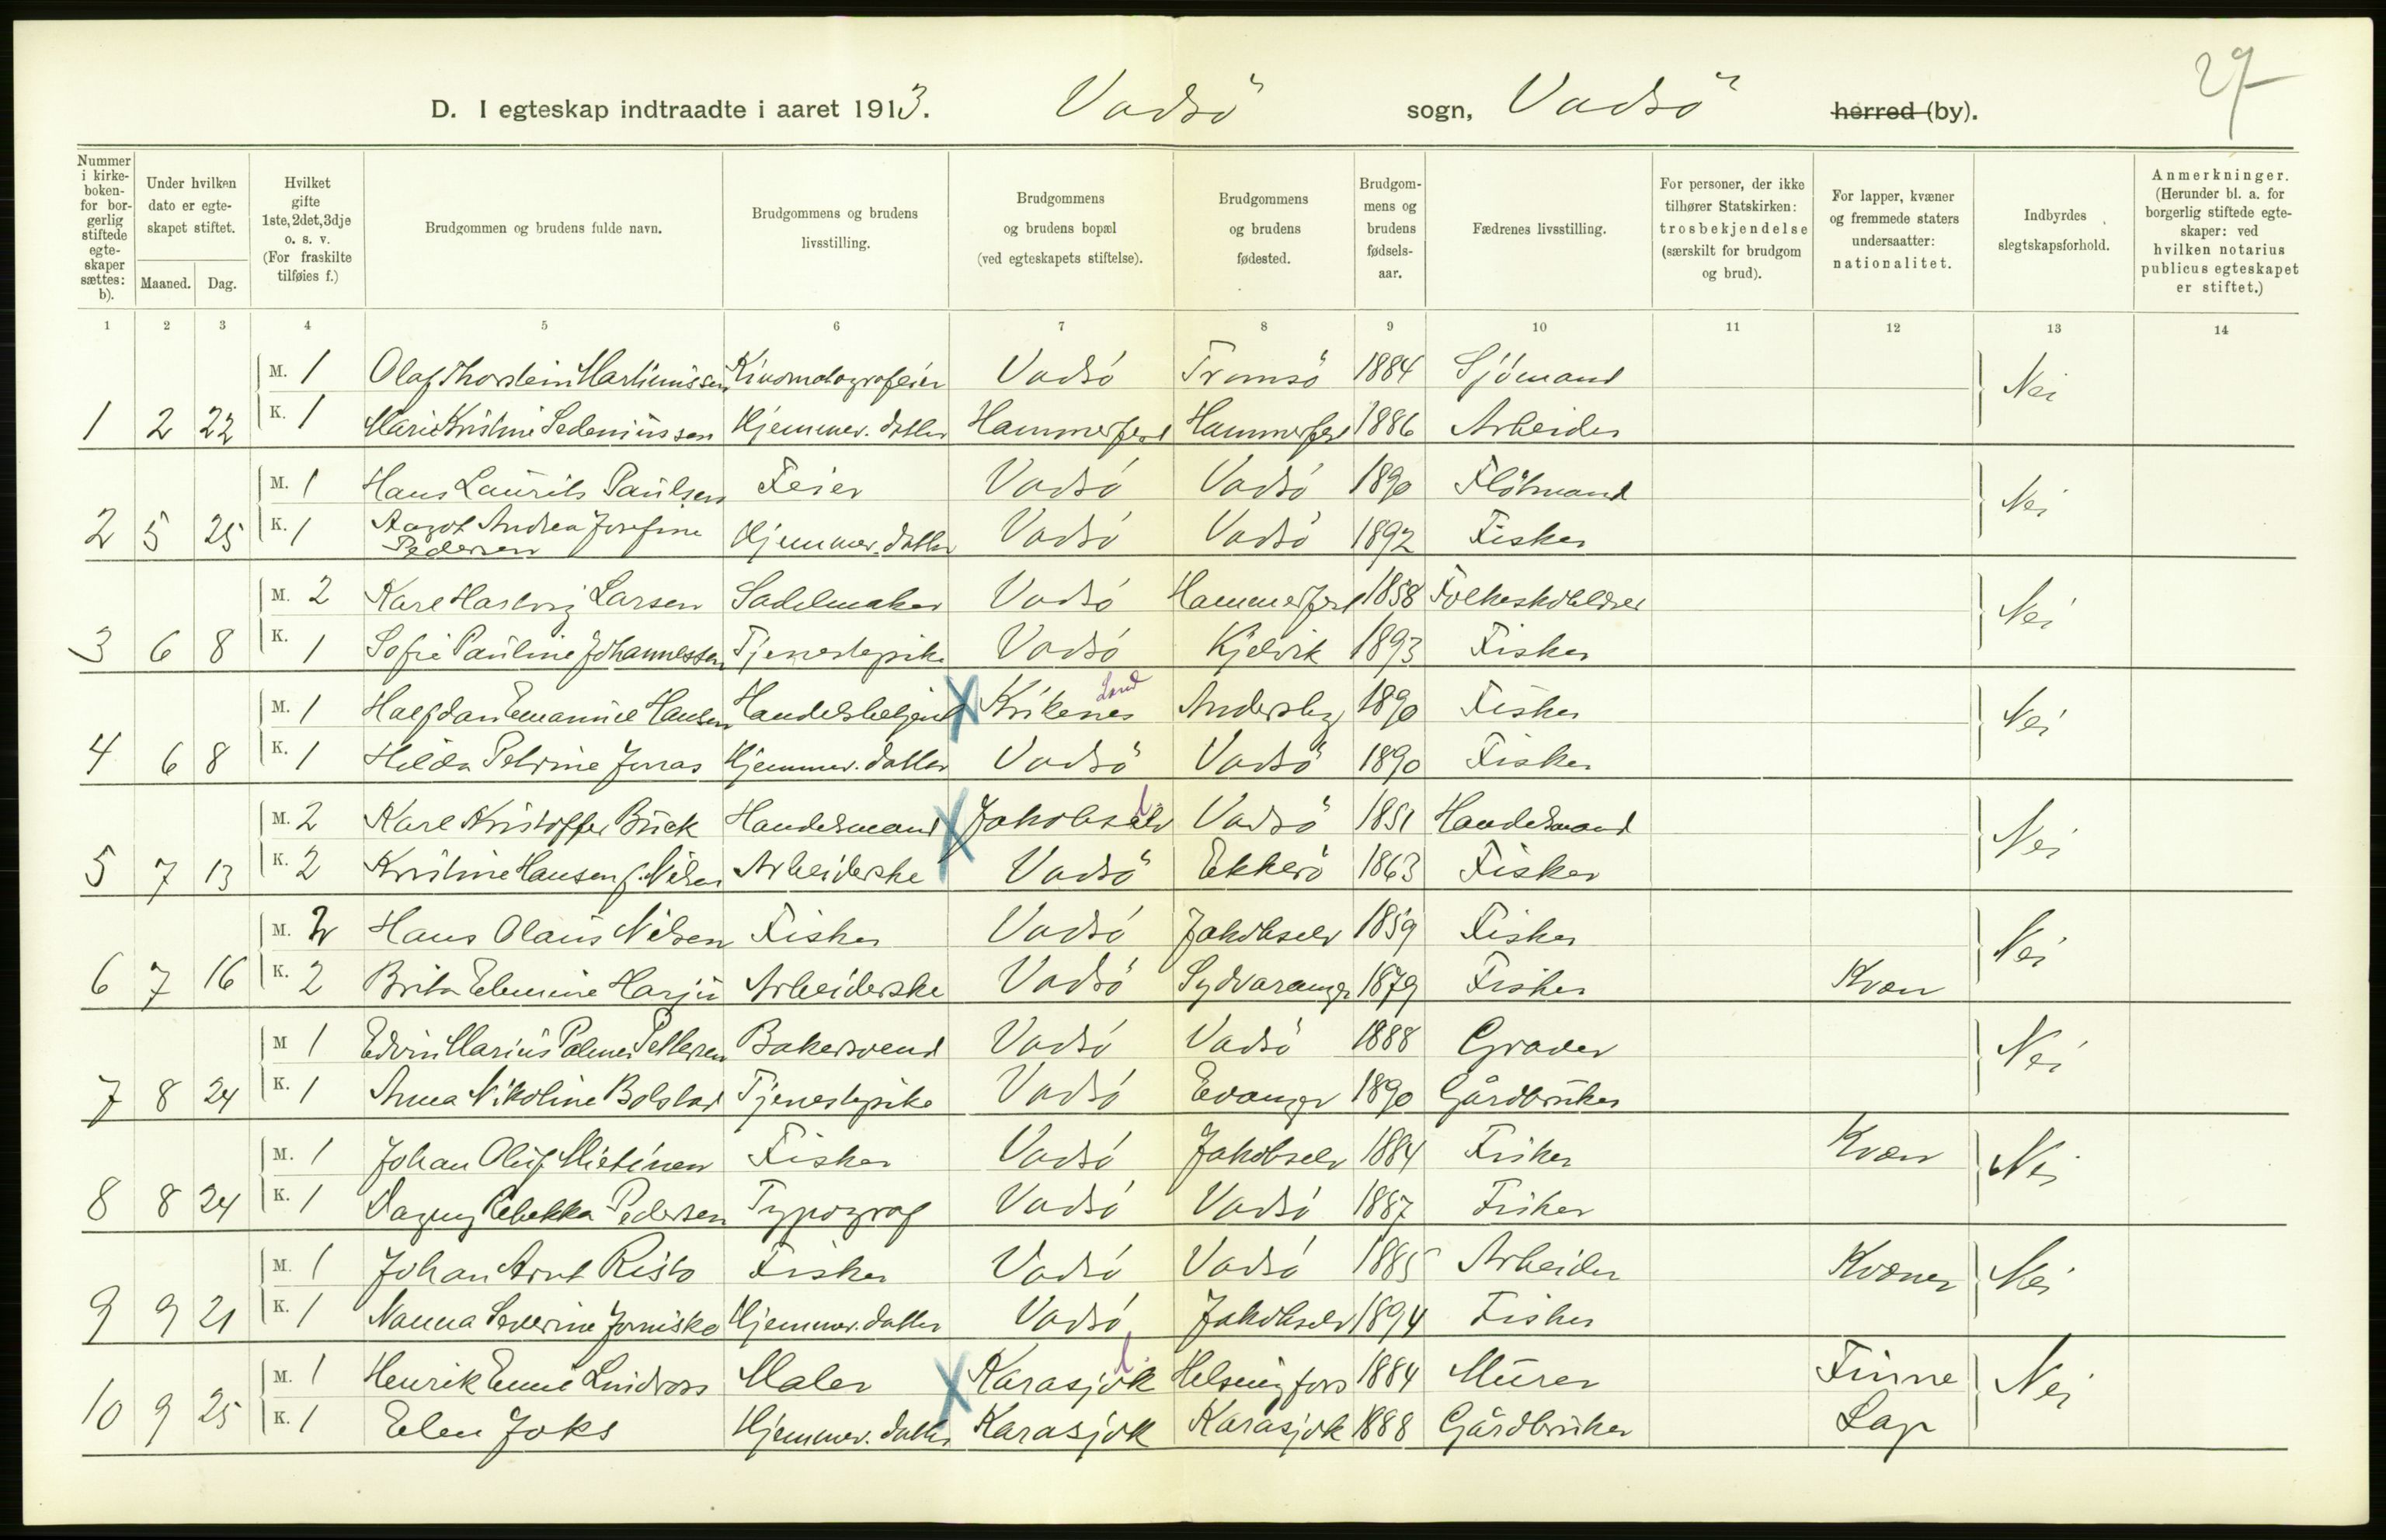 27
D. I egteskap indtraadte i aaret 1913. Vadsö sogn, Vadsö herred (by).
Nummer i kirkeboken for borgerlig stiftede egteskaper sættes: b).
Under hvilken dato er egteskapet stiftet.
Maaned. Dag.
Hvilket gifte 1ste, 2det, 3dje o. s. v. (For fraskilte tilføies f.)
Brudgommen og brudens fulde navn.
Brudgommens og brudens livsstilling.
Brudgommens og brudens bopæl (ved egteskapets stiftelse).
Brudgommens og brudens fødested.
Brudgommens og brudens fødselsaar.
Fædrenes livsstilling.
For personer, der ikke tilhører Statskirken: trosbekjendelse (særskilt for brudgom og brud).
For lapper, kvæner og fremmede staters undersaatter: nationalitet.
Indbyrdes slegtskapsforhold.
Anmerkninger. (Herunder bl. a. for borgerlig stiftede egteskaper: ved hvilken notarius publicus egteskapet er stiftet.)
1 2 3 4 5 6 7 8 9 10 11 12 13 14
M. 1 Olaf Thorstein Martinussen Kinomatografeier Vadsö Tromsö 1884 Sjömand Nei
1 2 22 K. 1 Marie Kristine Sedeniussen Hjemmev. datter Hammerfest Hammerfest 1886 Arbeider
M. 1 Hans Laurits Paulsen Feier Vadsö Vadsö 1890 Flötmand Nei
2 5 25 K. 1 Aagot Andrea Josefine Pedersen Hjemmev. datter Vadsö Vadsö 1892 Fisker
M. 2 Karl Hartvig Larsen Sadelmaker Vadsö Hammerfest 1858 Folkeskolelærer Nei
3 6 8 K. 1 Sofie Pauline Johannessen Tjenestepike Vadsö Kjelvik 1893 Fisker
M. 1 Halfdan Emanuel Hansen Handelsbetjent Kirkenes Land Andersby 1890 Fisker Nei
4 6 8 K. 1 Hilda Petrine Jerras Hjemmev. datter Vadsö Vadsö 1890 Fisker
M. 2 Karl Kristoffer Buck Handelsmand Jakobselv Vadsö 1851 Handelsmand Nei
5 7 13 K. 2 Kristine Hansen f. Nilsen Arbeiderske Vadsö Ekkerö 1863 Fisker
M. 2 Hans Olaus Nilsen Fisker Vadsö Jakobselv 1859 Fisker Nei
6 7 16 K. 2 Brita Elenine Harju Arbeiderske Vadsö Sydvaranger 1879 Fisker Kvæn
M 1 Edvin Marius Palmer Pettersen Bakersvend Vadsö Vadsö 1888 Graver Nei
7 8 24 K. 1 Anna Nikoline Bolstad Tjenestepike Vadsö Evanger 1890 Gårdbruker
M. 1 Johan Oluf Mietinen Fisker Vadsö Jakobselv 1884 Fisker Kvæn Nei
8 8 24 K. 1 Dagny Rebekka Pedersen Typograf Vadsö Vadsö 1887 Fisker
M. 1 Johan Arnt Risto Fisker Vadsö Vadsö 1885 Arbeider Kvæner Nei
9 9 21 K. 1 Nanna Severine Jornisko Hjemmev. datter Vadsö Jakobselv 1894 Fisker
M. 1 Henrik Enni Lindross Maler Karasjok Helsingfors 1884 Murer Finne Nei
10 9 25 K. 1 Elen Joks Hjemmev. datter Karasjok Karasjok 1888 Gårdbruker Lap